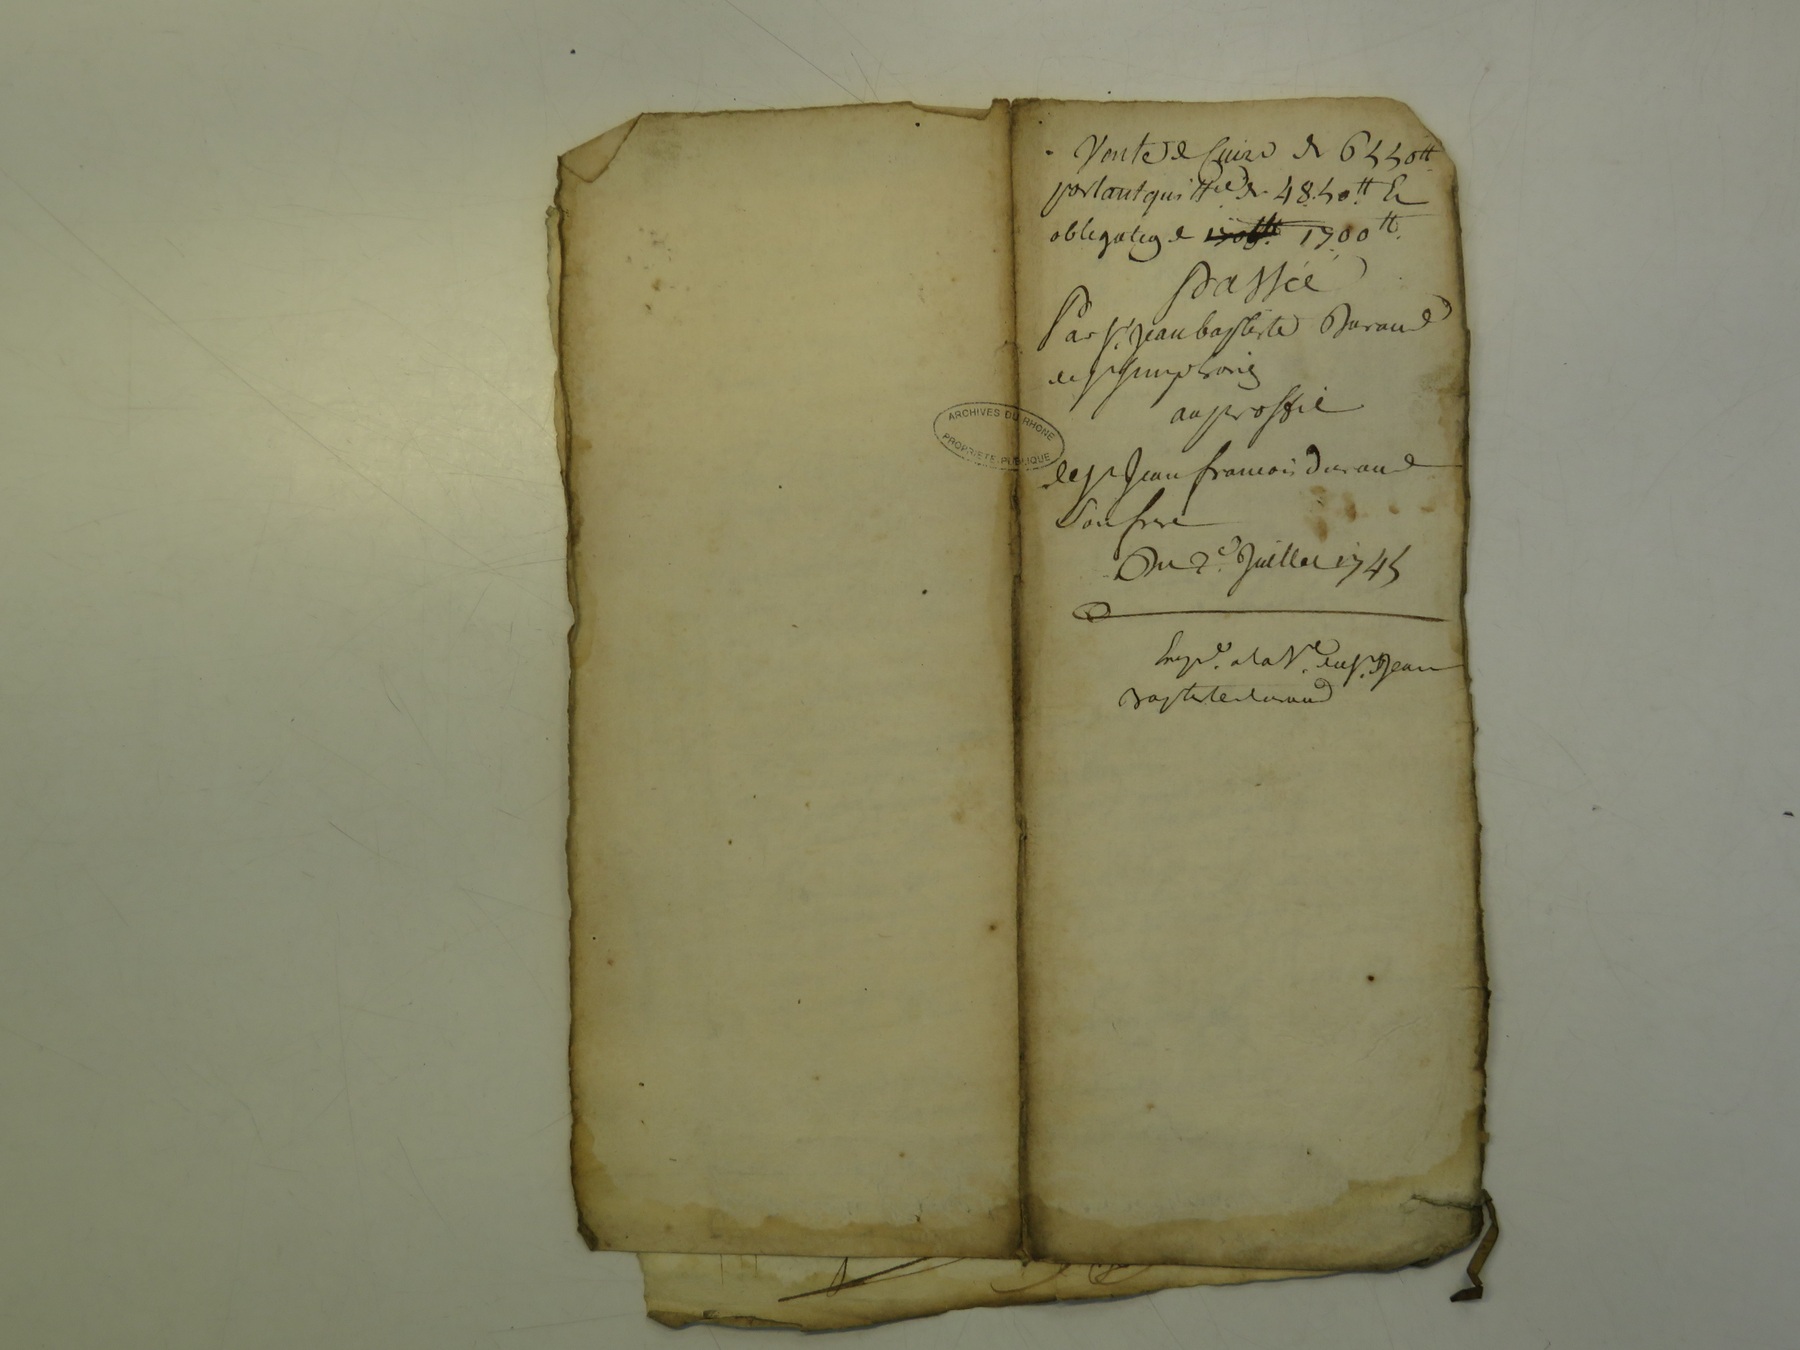 Vente de Cuirs de 6550tt
portant quittce de 4850tt Et
obligatõn de 1700tt
passée
Par Sr. Jean baptiste Durand
de St Simphorien
au proffit
de Sr Jean francois durand
Son frere
Du 2e. Juillet 1745
Exp.é a la Ve. du Sr. Jean
baptiste durand
ARCHIVES DU RHONE
PROPRIETE PUBLIQUE